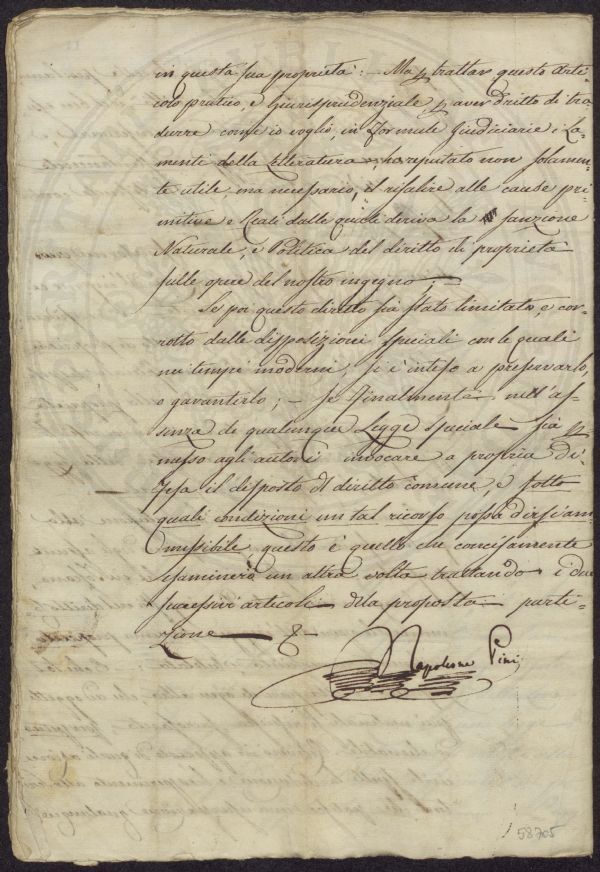 in questa sua proprietà: — Ma p trattar questo Arti-
colo pratico, e Giurisprudenziale p aver dritto di tra-
durre come io voglio, in Formule Giudiciarie i La-
menti della Letteratura, ho reputato non solamen-
te utile, ma necessario, il risalire alle cause pri-
mitive e Reali dalle quali deriva la sanzione
Naturale, e Politica del diritto di proprietà
sulle opere del nostro ingegno; —
Se poi questo diretto sia stato limitato, e cor-
rotto dalle disposizioni speciali con le quali
nei tempi moderni, si è inteso a preservarlo,
o garantirlo; — Se Finalmente nell'as-
senza di qualunque Legge speciale sia p
messo agli autori invocare a propria di-
fesa il disposto dl diritto comune, e sotto
quali condizioni un tal ricorso possa dirsi am-
missibile, questo è quello che concisamente
esaminerò un altra volta trattando i due
successivi articoli dela proposta parti-
zione —
Napoleone Pini
58705